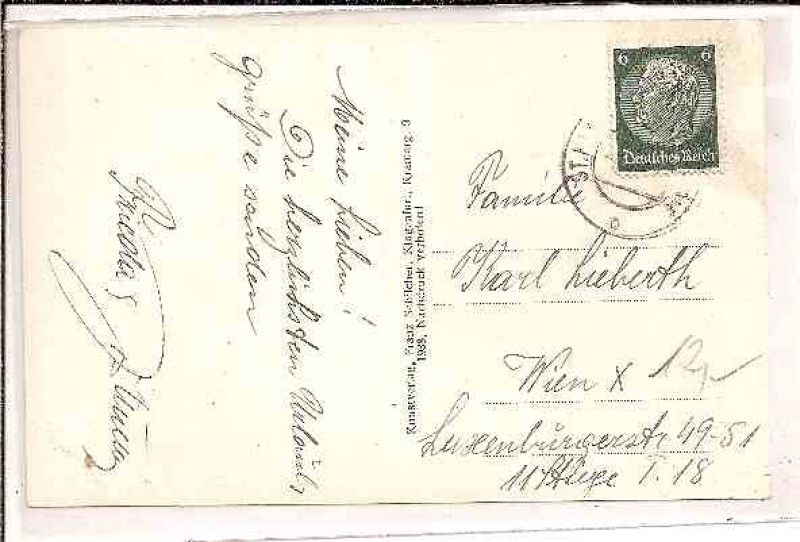 Meine Lieben!
Die herzlichsten Urlaubs
grüße senden
Kunstverlag, Franz Schilcher, Klagenfurt, Kramerg. 3
1938, Nachdruck verboten!
6 6
Deutsches Reich
Familie
Karl Lieberth
Wien X
Luxenburgerstr 49-51
11 Stiege T. 18